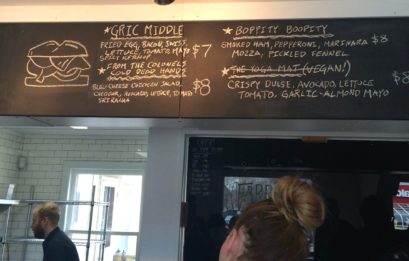 ★GRIC MIDDLE
FRIED EGG, BACON, SWISS,
LETTUCE, TOMATO, MAYO
$7
★FROM THE COLONEL'S
COLD DEAD HANDS
BLEU CHEESE CHICKEN SALAD,
CHEDDAR, AVOCADO, LETTUCE, TOMATO
SRIRACHA
$8
★BOPPITY BOOPITY
SMOKED HAM, PEPPERONI, MARINARA
MOZZA, PICKLED FENNEL
$8
★THE YOGA MAT (VEGAN!)
CRISPY DULSE, AVOCADO, LETTUCE
TOMATO, GARLIC-ALMOND MAYO